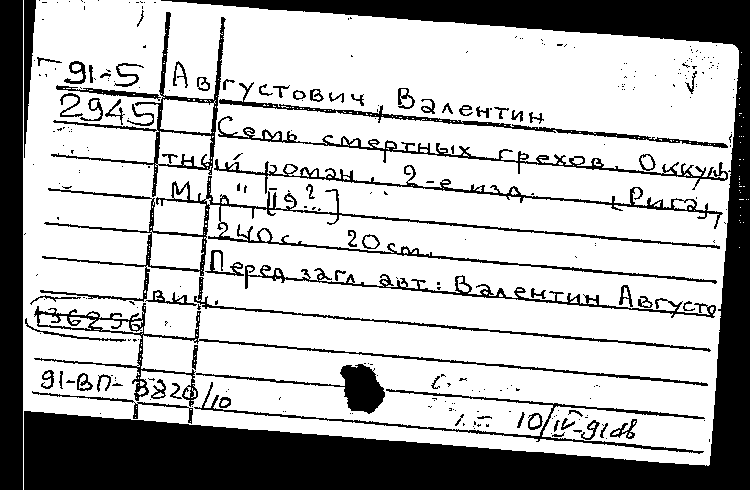 91-5 Августович, Валентин
2945 Семь смертных грехов. Оккуль
тный роман. 2-е изд. [Рига],
"Мир" [19..?]
240 с. 20 см.
Перед загл. авт.: Валентин Августо-
вич.
136256
91-ВП-3820/10
10/IV-91